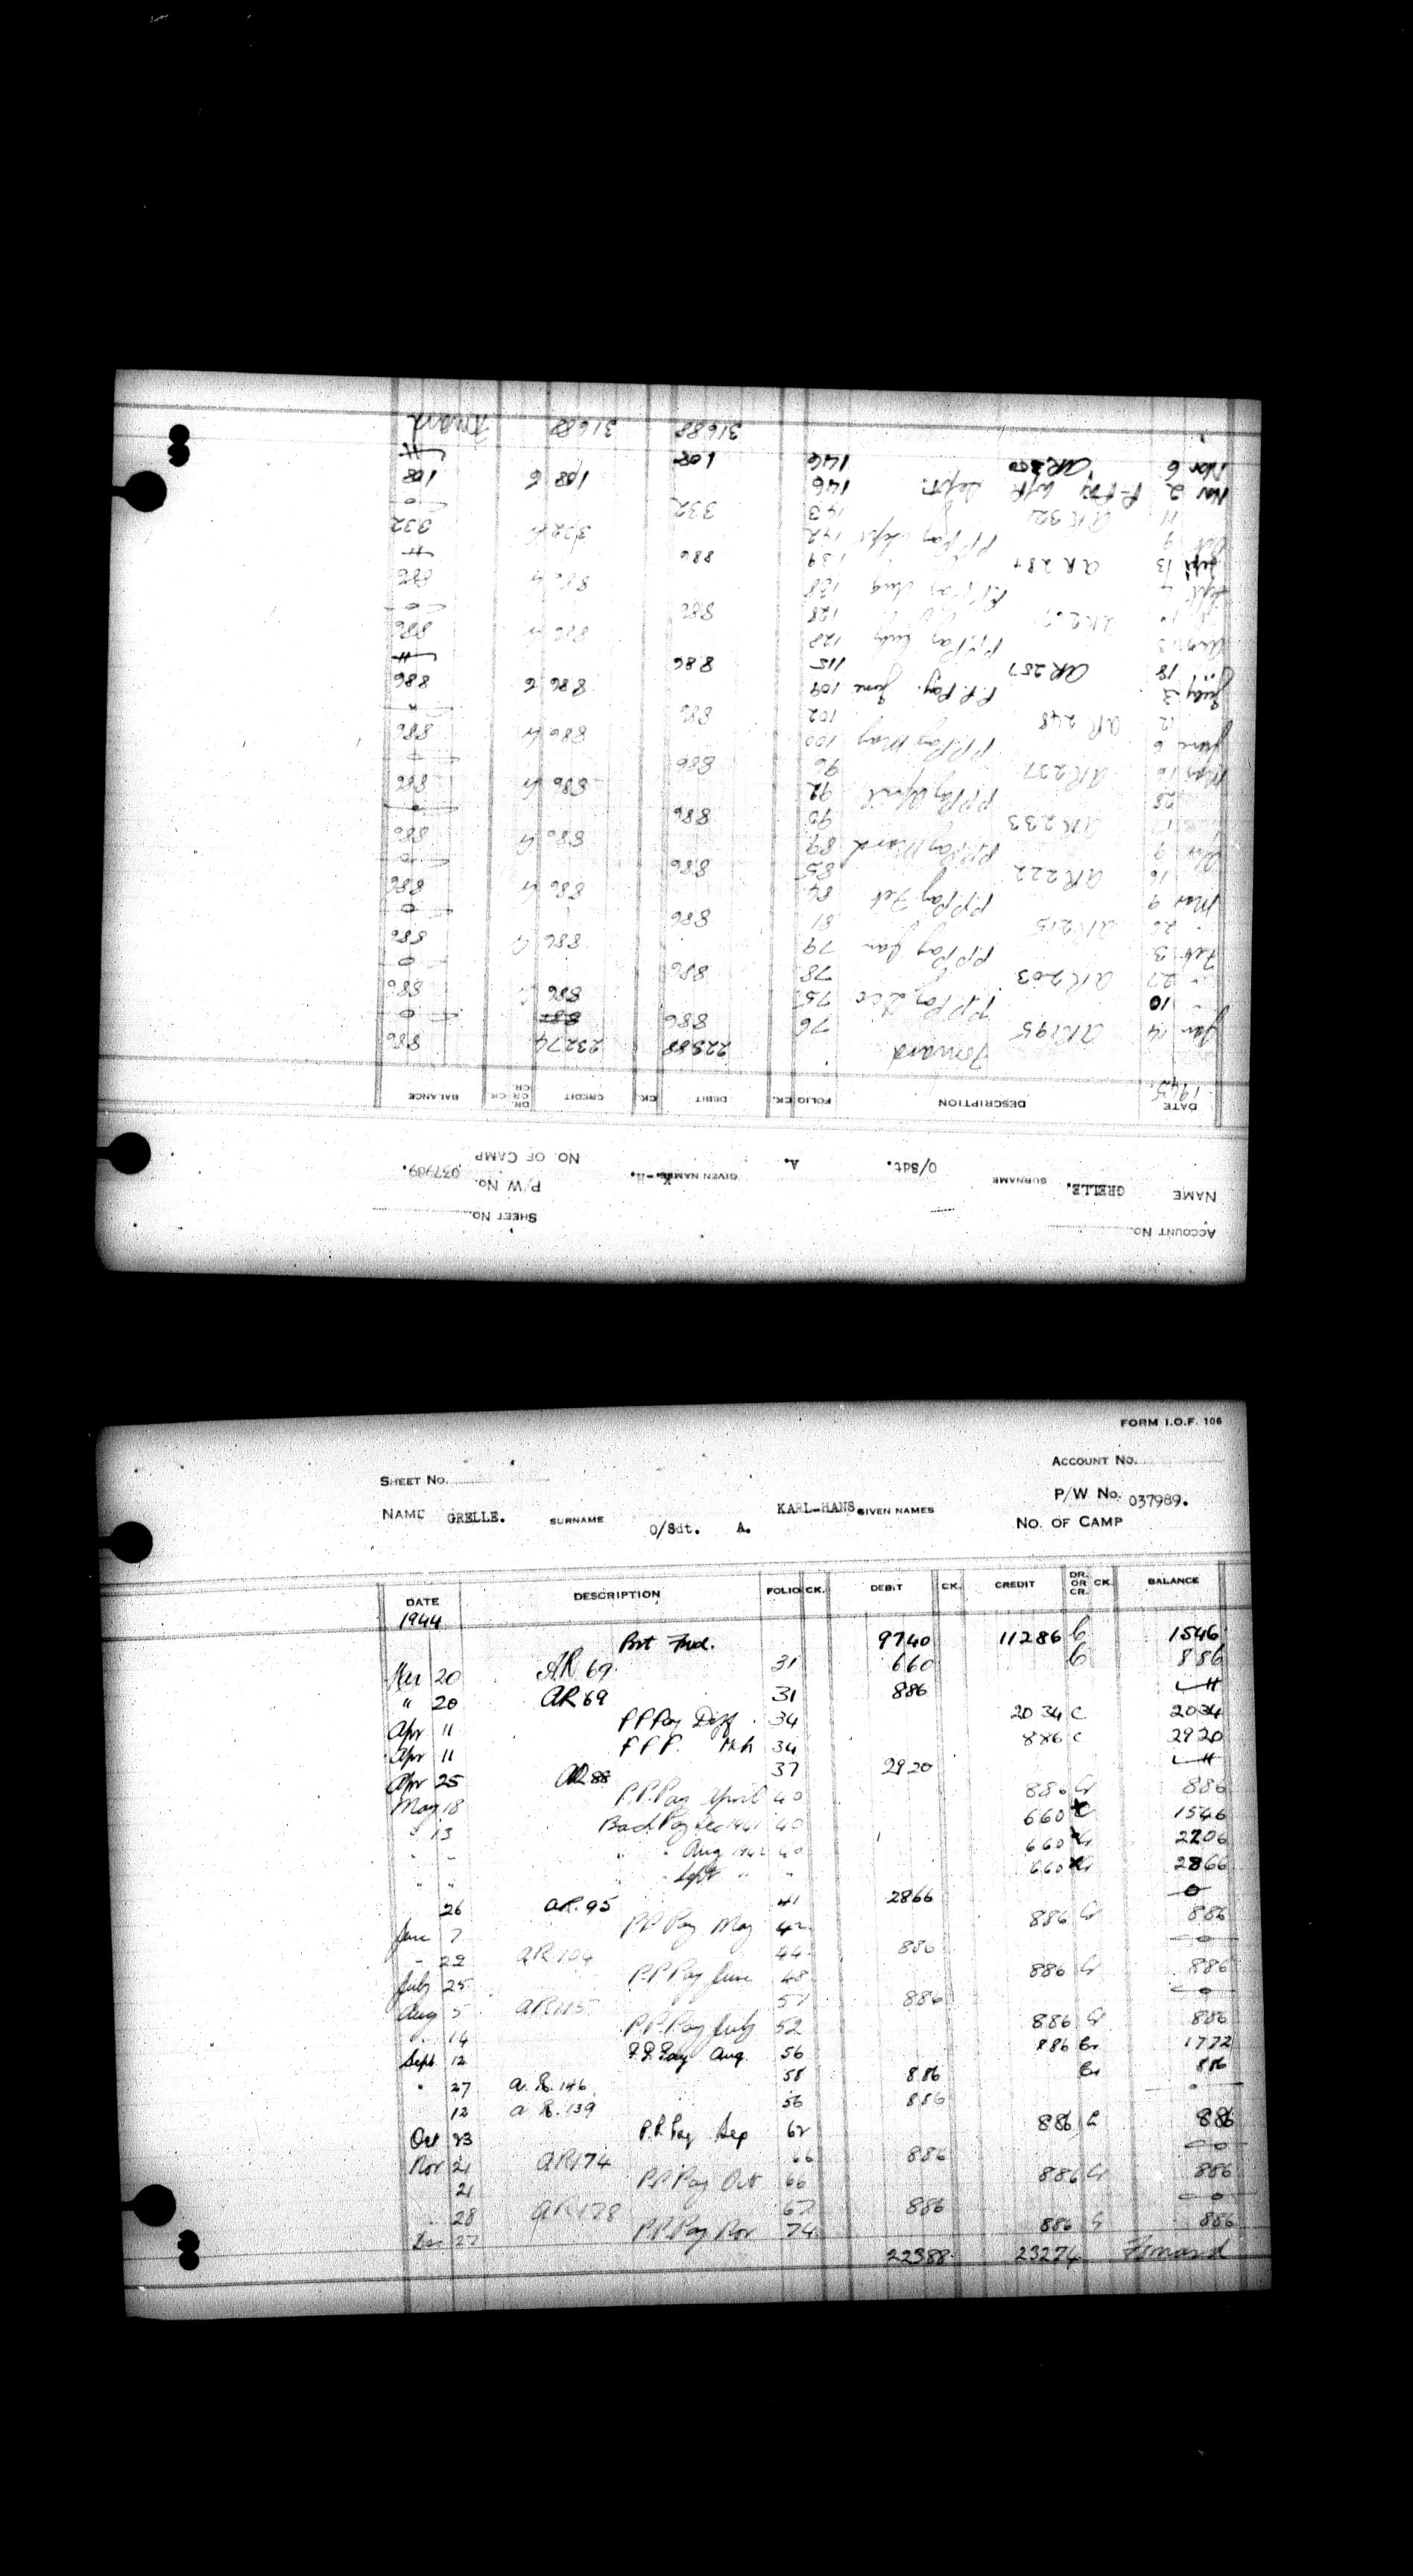 ACCOUNT No.
SHEET No.
NAME GRELLE. SURNAME O/Sdt. A. GIVEN NAMES K.-H. P/W No. 037989.
NO. OF CAMP
DATE DESCRIPTION FOLIO CK. DEBIT CK. CREDIT DR. OR CR. CK. BALANCE
1945
Forward 22388 23274 886
Jan 14 AR195 76 886 0
" 10 P.P. Pay Dec 75 886 886
" 27 AR203 78 886 0
Feb 3 P.P. Pay Jan 79 886 886
26 AR215 81 886 0
Mar 9 P.P. Pay Feb 84 886 886
16 AR222 85 886 0
9 P.P. Pay March 89 886 886
17 AR233 90 886
28 P.P. Pay April 92 886 886
May 16 AR237 96 886
June 6 P.P. Pay May 100 886 886
12 AR248 102 886
July 3 P.P. Pay. June 109 886 886
18 AR257 115 886
Aug 3 P.P. Pay July 128 886 886
128 886 0
Sept P.P. Pay Aug 138 886 886
Sept 13 AR 139 886
Oct 9 P.P. Pay Sept 142 332 332
11 AR321 143 332 0
Nov 2 P.P. Pay W/R Sept. 146 108 108
Nov 6 AR 146 108
31688 31688 Forward
FORM I.O.F. 106
SHEET No. ACCOUNT No.
NAME GRELLE. SURNAME O/Sdt. A. KARL-HANS. GIVEN NAMES P/W No. 037989.
NO. OF CAMP
DATE DESCRIPTION FOLIO CK. DEBIT CK. CREDIT DR. OR CR. CK. BALANCE
1944
Brt Fwd. 9740 11286 C 1546
Mar 20 AR 69 31 660 C 886
" 20 AR 69 31 886
Apr 11 P P Pay Diff. 34 2034 C 2034
Apr 11 P P P. Mch 34 886 C 2920
Apr 25 AR 88 37 2920
May 18 P.P. Pay April 40 886 Cr 886
" 13 Back Pay Dec 1941 40 660 Cr 1546
" " " " Aug 1942 40 660 Cr 2206
" " " Sept " " 660 Cr 2866
26 AR. 95 41 2866 0
June 7 P.P. Pay May 42 886 Cr 886
" 22 AR 104 44 886 0
July 25 P.P. Pay June 48 886 Cr 886
Aug 5 AR 115 51 886 0
" 14 P.P. Pay July 52 886 Cr 886
Sept 12 P.P. Pay Aug. 56 886 Cr 1772
" 27 A.R. 146 58 886 Cr 886
12 A.R. 139 56 886
Oct 23 P.P. Pay Sep 62 886 C 886
Nov 21 AR174 66 886 0
21 P.P. Pay Oct 66 886 Cr 886
" 28 AR178 67 886 0
Dec 27 P.P. Pay Nov 74 886 Cr 886
22388 23274 Forward